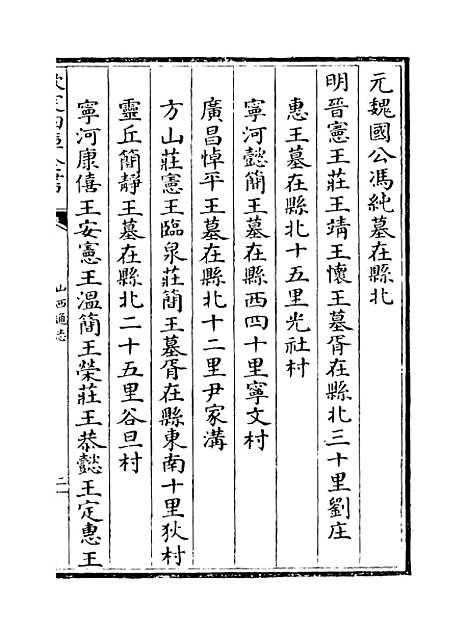 元魏國公馮純墓在縣北
明晉憲王莊王靖王懷王墓胥在縣北三十里劉庄
惠王墓在縣北十五里光社村
寧河懿簡王墓在縣西四十里寧文村
廣昌悼平王墓在縣北十二里尹家溝
方山莊憲王臨泉莊簡王墓胥在縣東南十里狄村
靈丘簡靜王墓在縣北二十五里谷旦村
寧河康僖王安憲王溫簡王榮莊王恭懿王定惠王
山西通志